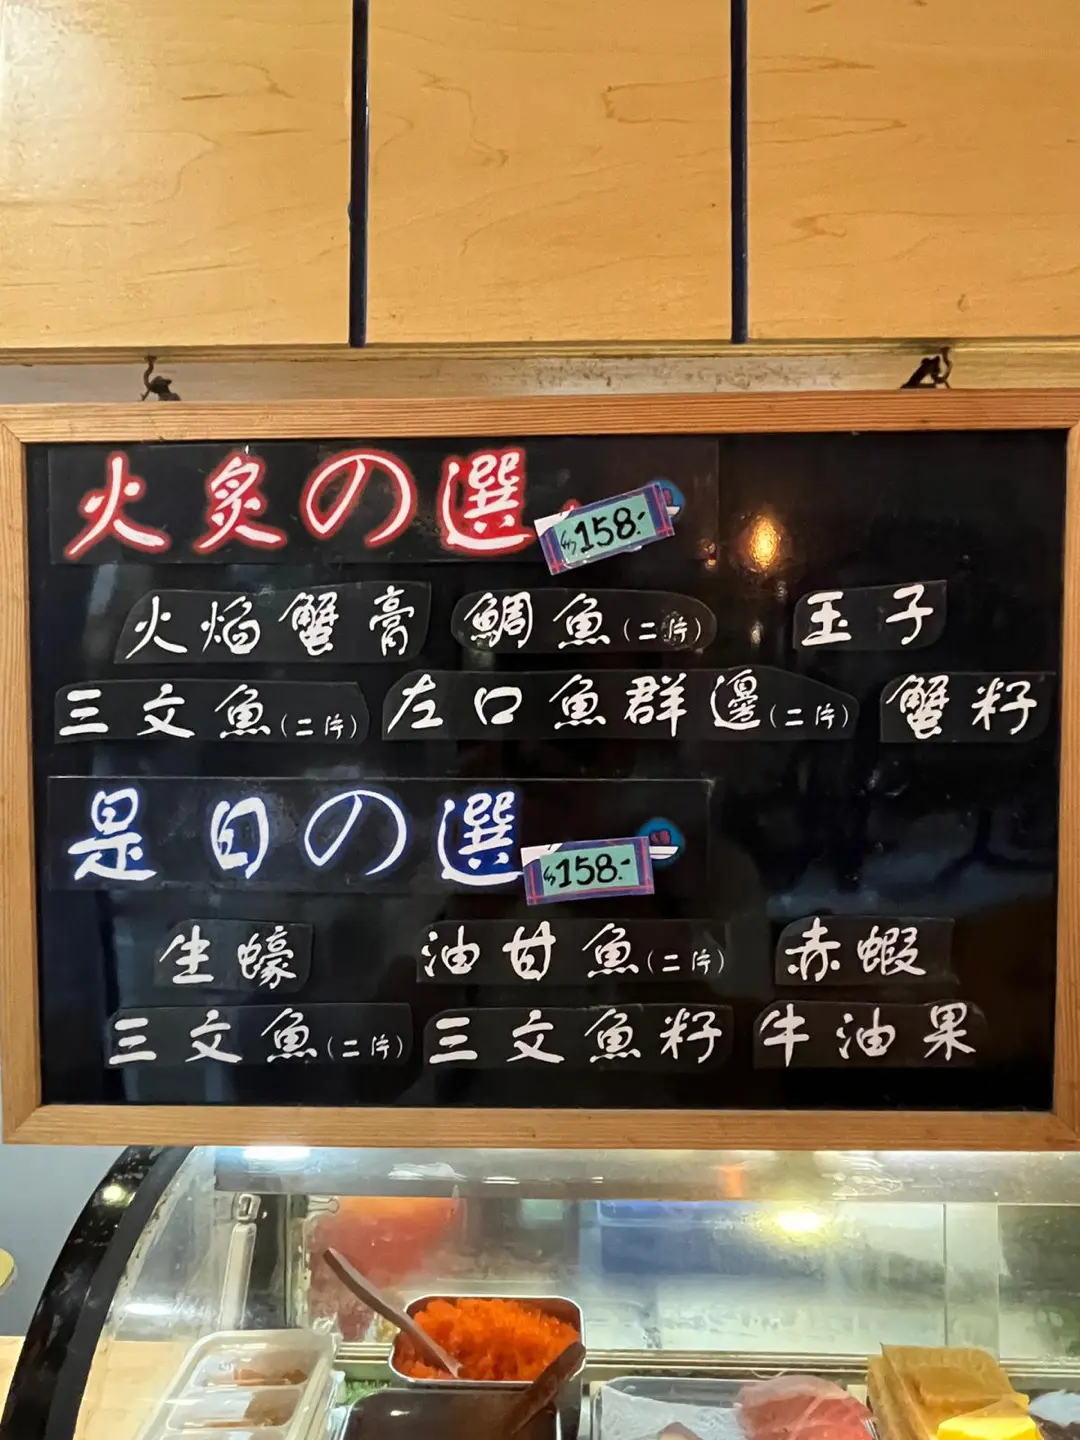 火炙の選 $158.-
火焰蟹膏 鯛魚(二片) 玉子
三文魚(二片) 左口魚群邊(二片) 蟹籽
是日の選 $158.-
生蠔 油甘魚(二片) 赤蝦
三文魚(二片) 三文魚籽 牛油果